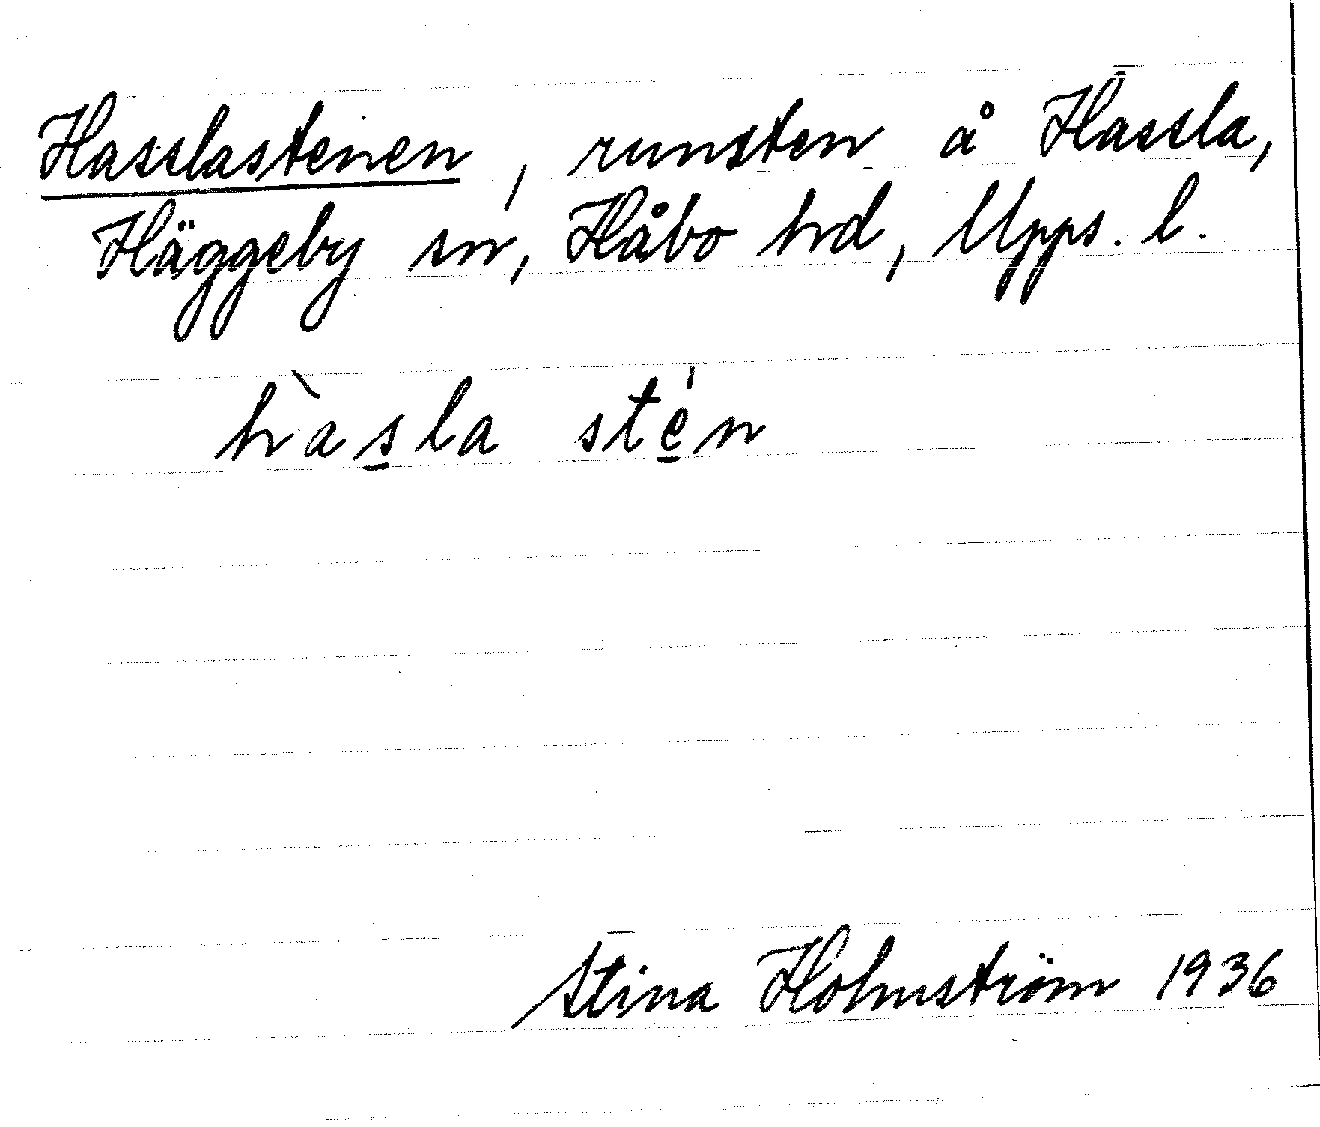 Hasslastenen, runsten å Hassla,
Häggeby sn, Håbo hd, Upps. l.
hàs̲la sté̲n
Stina Holmström 1936